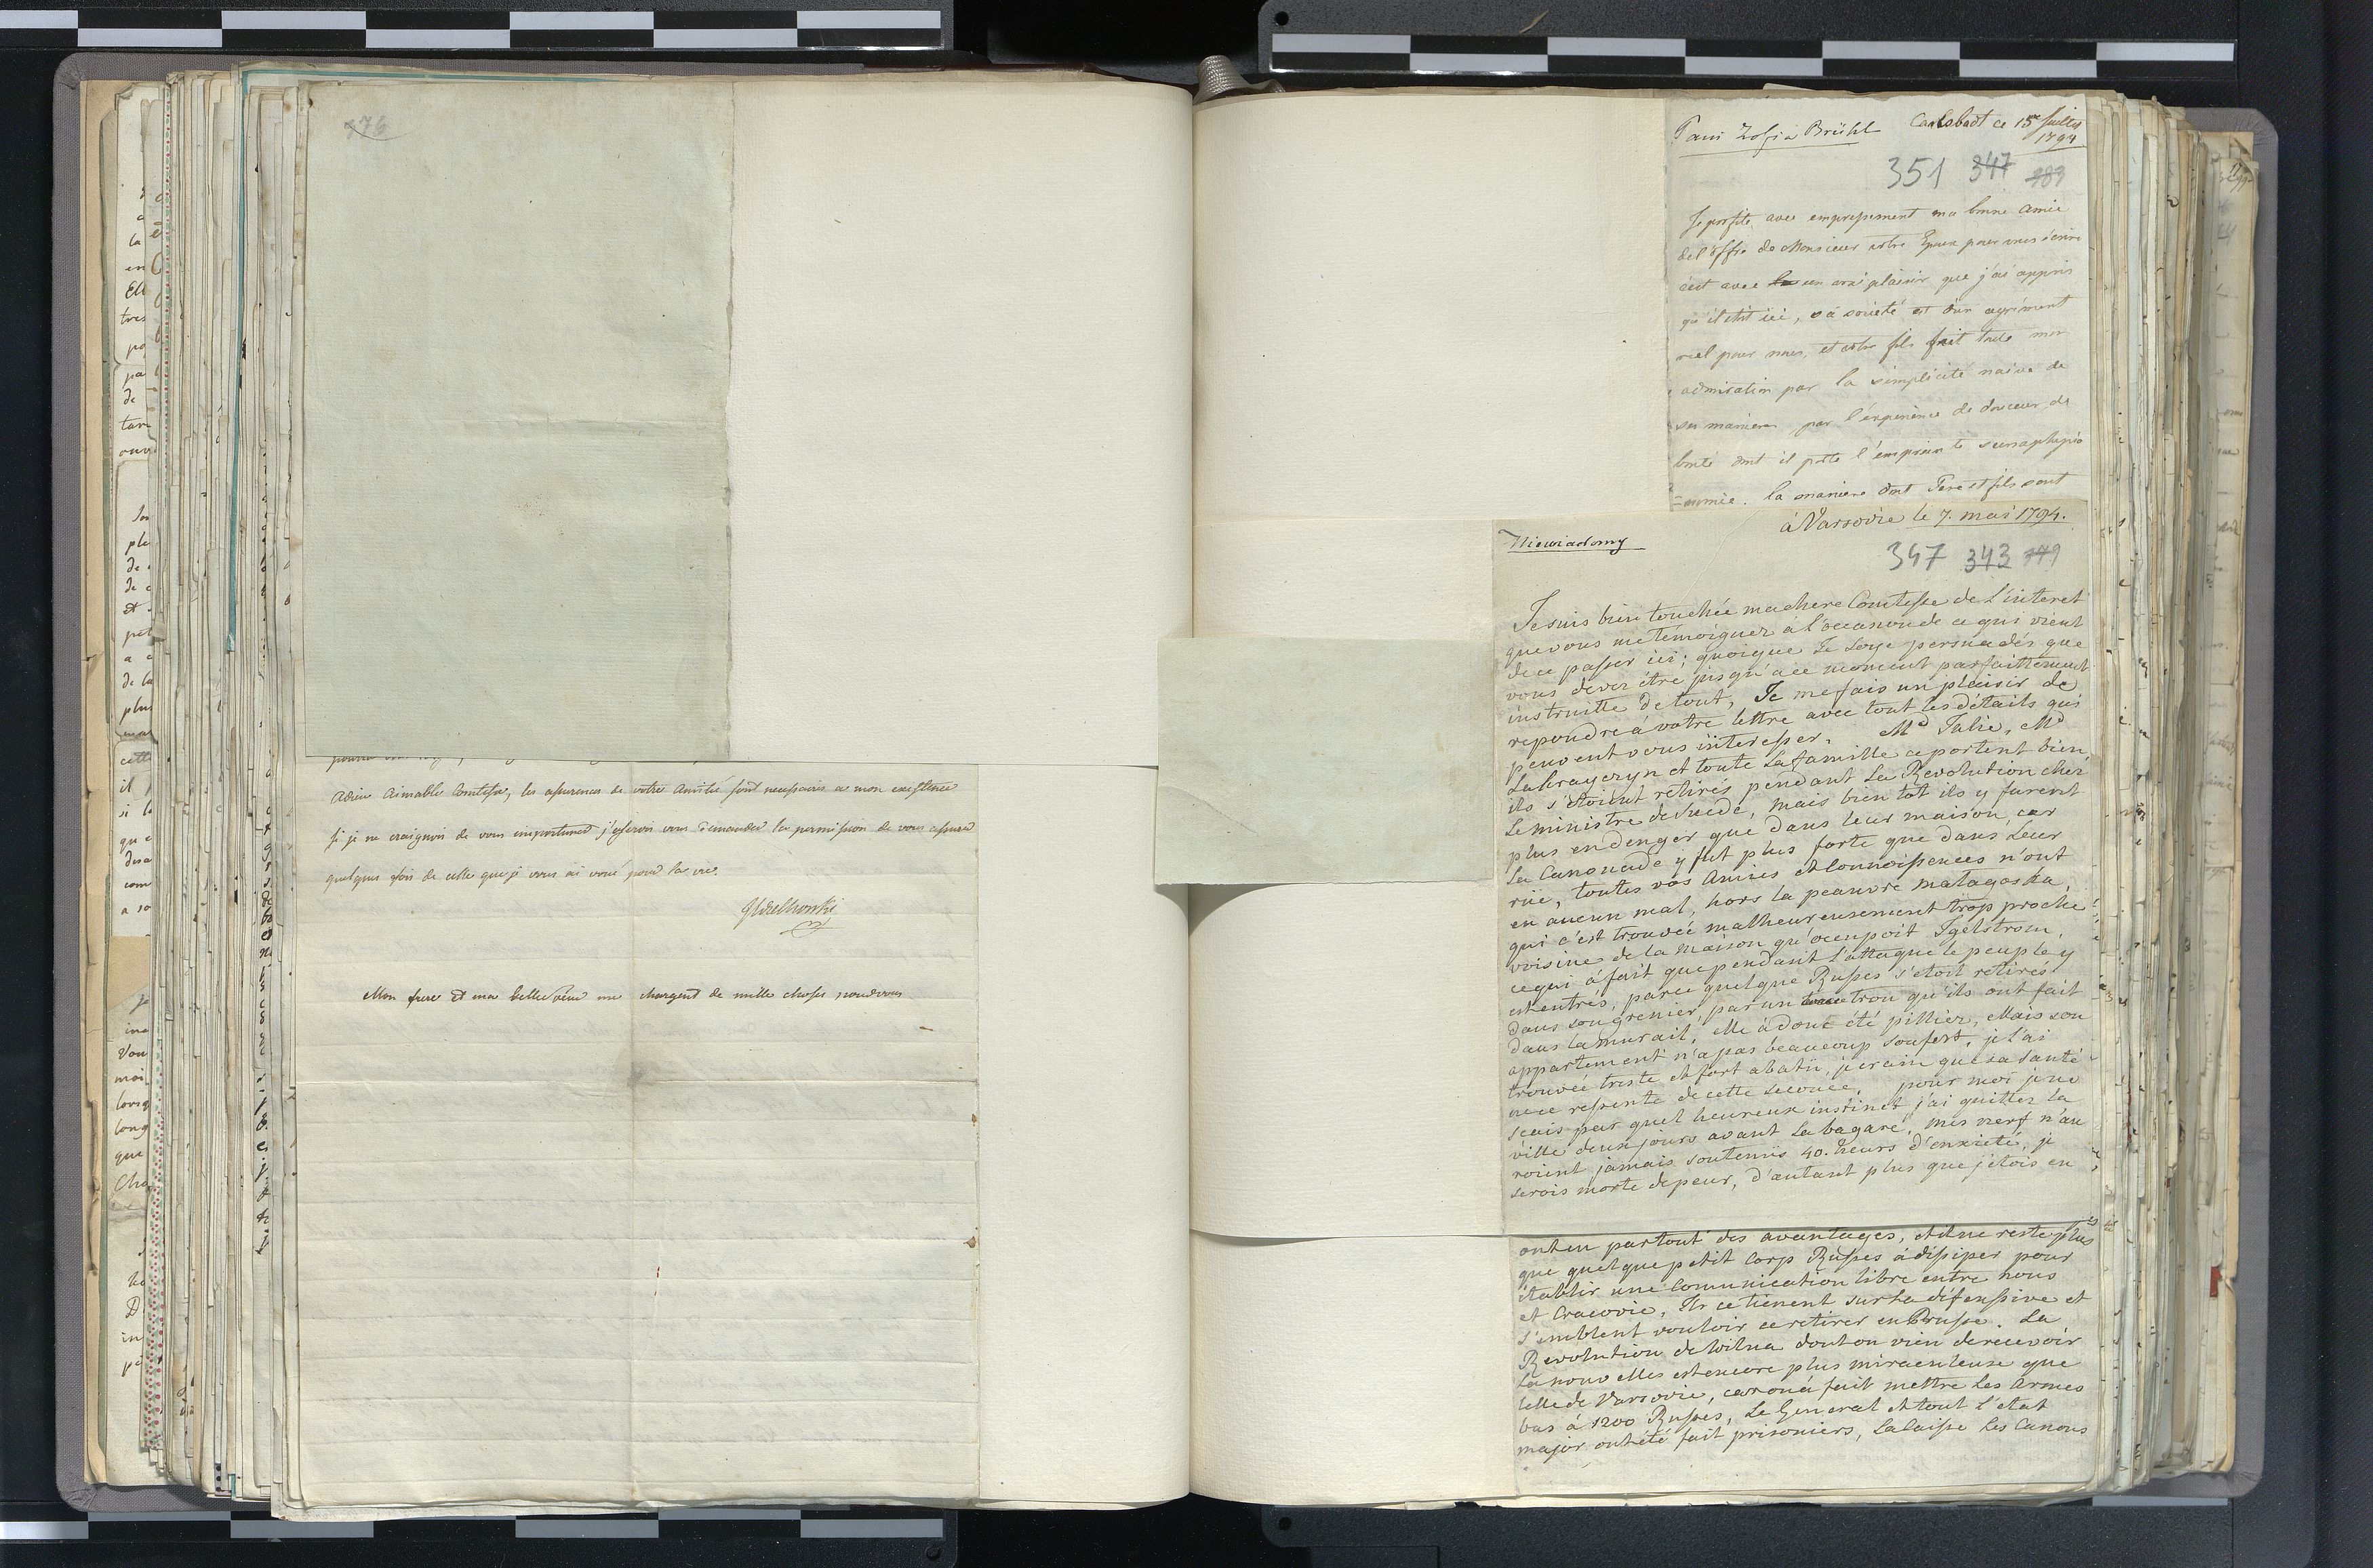 374
Adieu Aimable Comtesse, les assurances de votre Amitié sont necessaires a mon existence
si je ne craignois de vous importuner j'oserois vous demander la permission de vous assurer
quelques fois de celle que je vous ai voué pour la vie.
Mon frere et ma belle sœur me chargent de mille choses pour vous
Pani Zofia Brühl Carlsbadt ce 15me Juillet
1794
351 347 283
Je profite avec empressement ma bonne amie
de l'offre de Monsieur votre Epoux pour vous écrire
c'est avec un vrai plaisir que j'ai appris
qu'il etoit ici, sa société est d'un agrément
reel pour nous, et votre fils fait toute mon
admiration par la simplicité naive de
ses manieres, par l'expérience de douceur, de
bonté dont il porte l'empreinte sur sa phisio
=nomie. la maniere dont Pere et fils sont
à Varsovie le 7. mai 1794.
Niewiadomy
347 343
Je suis bien touchée ma chere Comtesse de l'interet
que vous me témoignez à l'occasion de ce qui vient
de ce passer ici; quoique Je soye persuadés que
vous devez être jusqu'a ce moment parfaittement
instruitte de tout, Je me fais un plaisir de
repondre à votre lettre avec tout les détails qui
peuvent vous interesser. Md Julie, Md
et toute La famille ce portent bien,
ils s'étoient retirés pendant La Revolution chéz
Le ministre de Suede, mais bien tot ils y furent
plus en denger que dans leur maison, car
La Canonade y fut plus forte que dans Leur
rüe, toutes vos Amies et Connoissences n'ont
en aucun mal, hors la peauvre matagoska,
qui c'est trouvée malheureusement trop proche
voisine de la maison qu'occupoit Igelstrom,
ce qui à fait que pendant l'attaque le peuple y
est entrés, parce quelque Russes s'étoit retirés
dans son grenier, par un trou qu'ils ont fait
dans la murail, elle à donc été pilliez, Mais son
appartement n'a pas beaucoup soufert, je l'ai
trouvée triste et fort abatüe, je crain que sa santé
ne ce resente de cette secouce, pour moi je ne
scais par quel heureux instinct j'ai quittez la
ville deux jours avant La bagare, mes nerf n'au
roient jamais soutenüs 40. heurs d'enxieté, je
serois morte de peur, d'autant plus que j'étois en
ont eu partout des avantages, et il ne reste plus
que quelque petit Corp Russes à dissiper pour
établir une Comunication libre entre nous
et Cracovie, Ils ce tienent sur La difensive et
s'emblent vouloir ce retirer en Prusse. La
Revolution de Wilna dont on vien de recevoir
La nouvelles est encore plus miraculeuse que
celle de Varsovie, car on à fait mettre Les Armes
bas à 1200 Russes, Le General et tout l'etat
major ont été fait prisoniers, les Canons